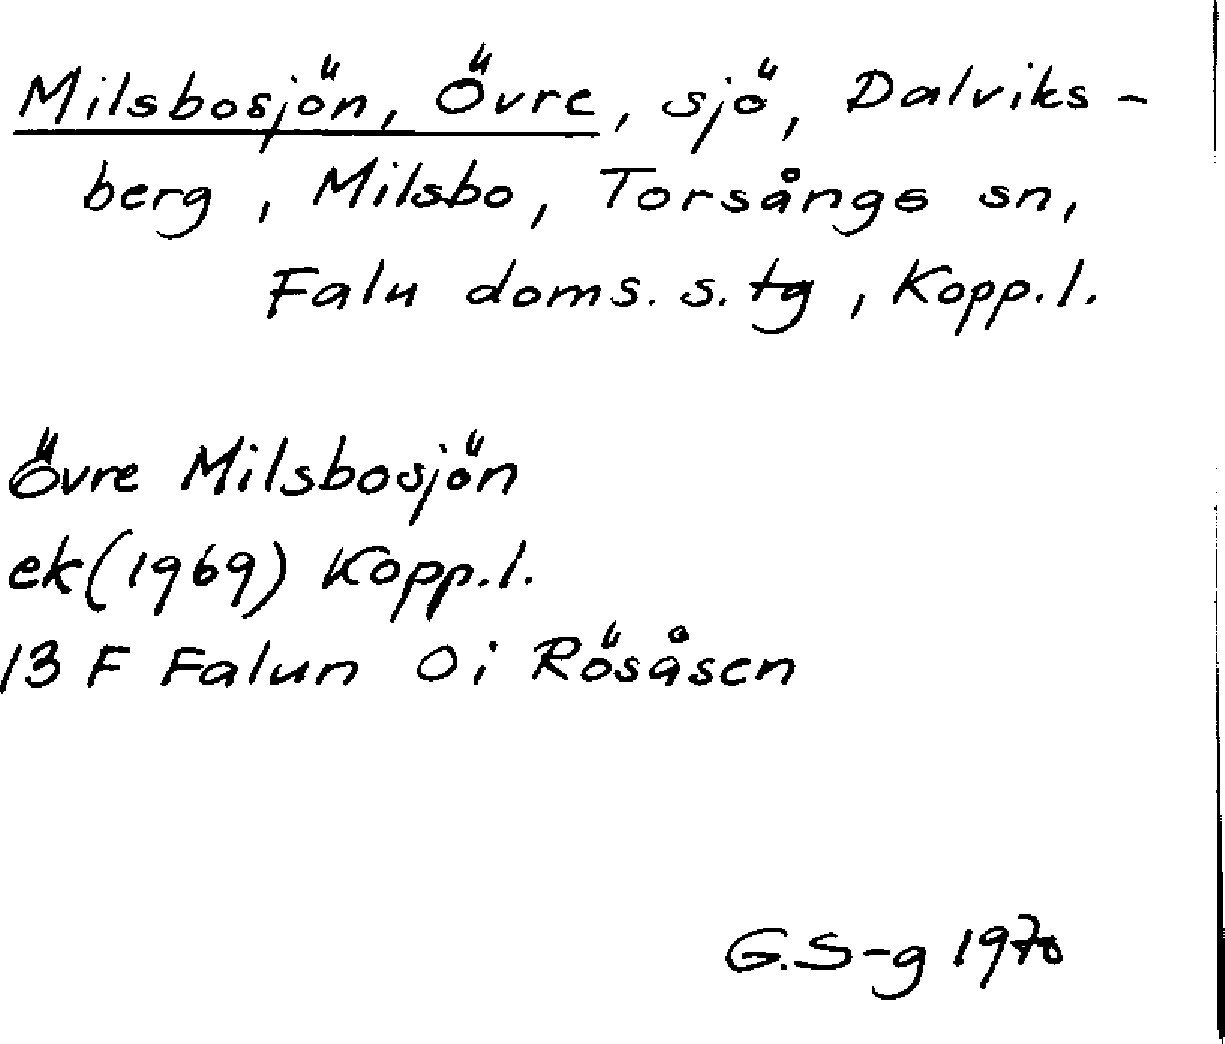 Milsbosjön, Övre, sjö, Dalviks-
berg, Milsbo, Torsångs sn,
Falu doms. s. tg, Kopp.l.
Övre Milsbosjön
ek(1969) Kopp.l.
13 F Falun 0i Rösåsen
G.S-g 1970